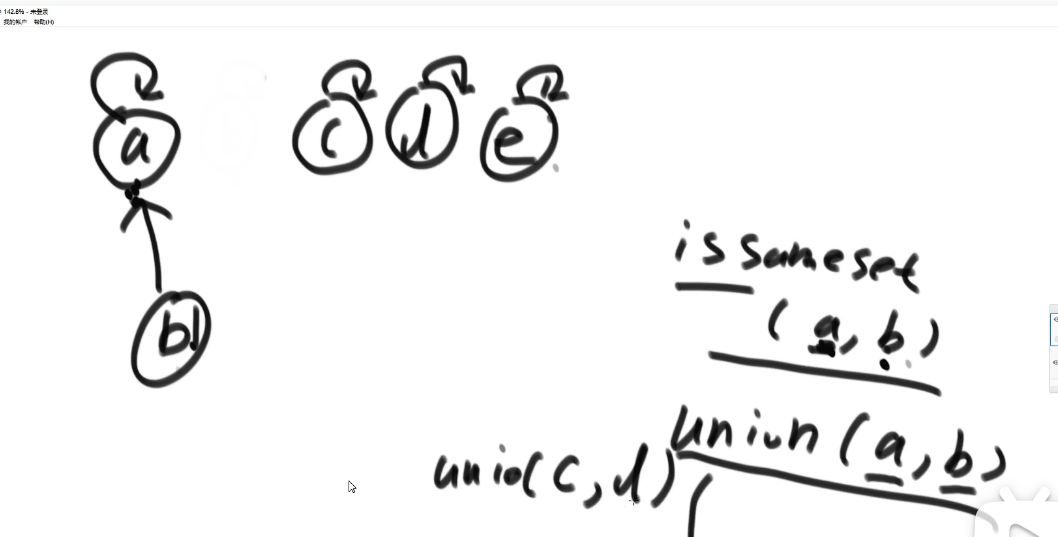 142.8% - 未登录
我的帐户 帮助(H)
a c d e
b
issameset
(a, b)
union(a, b)
unio(c, d)